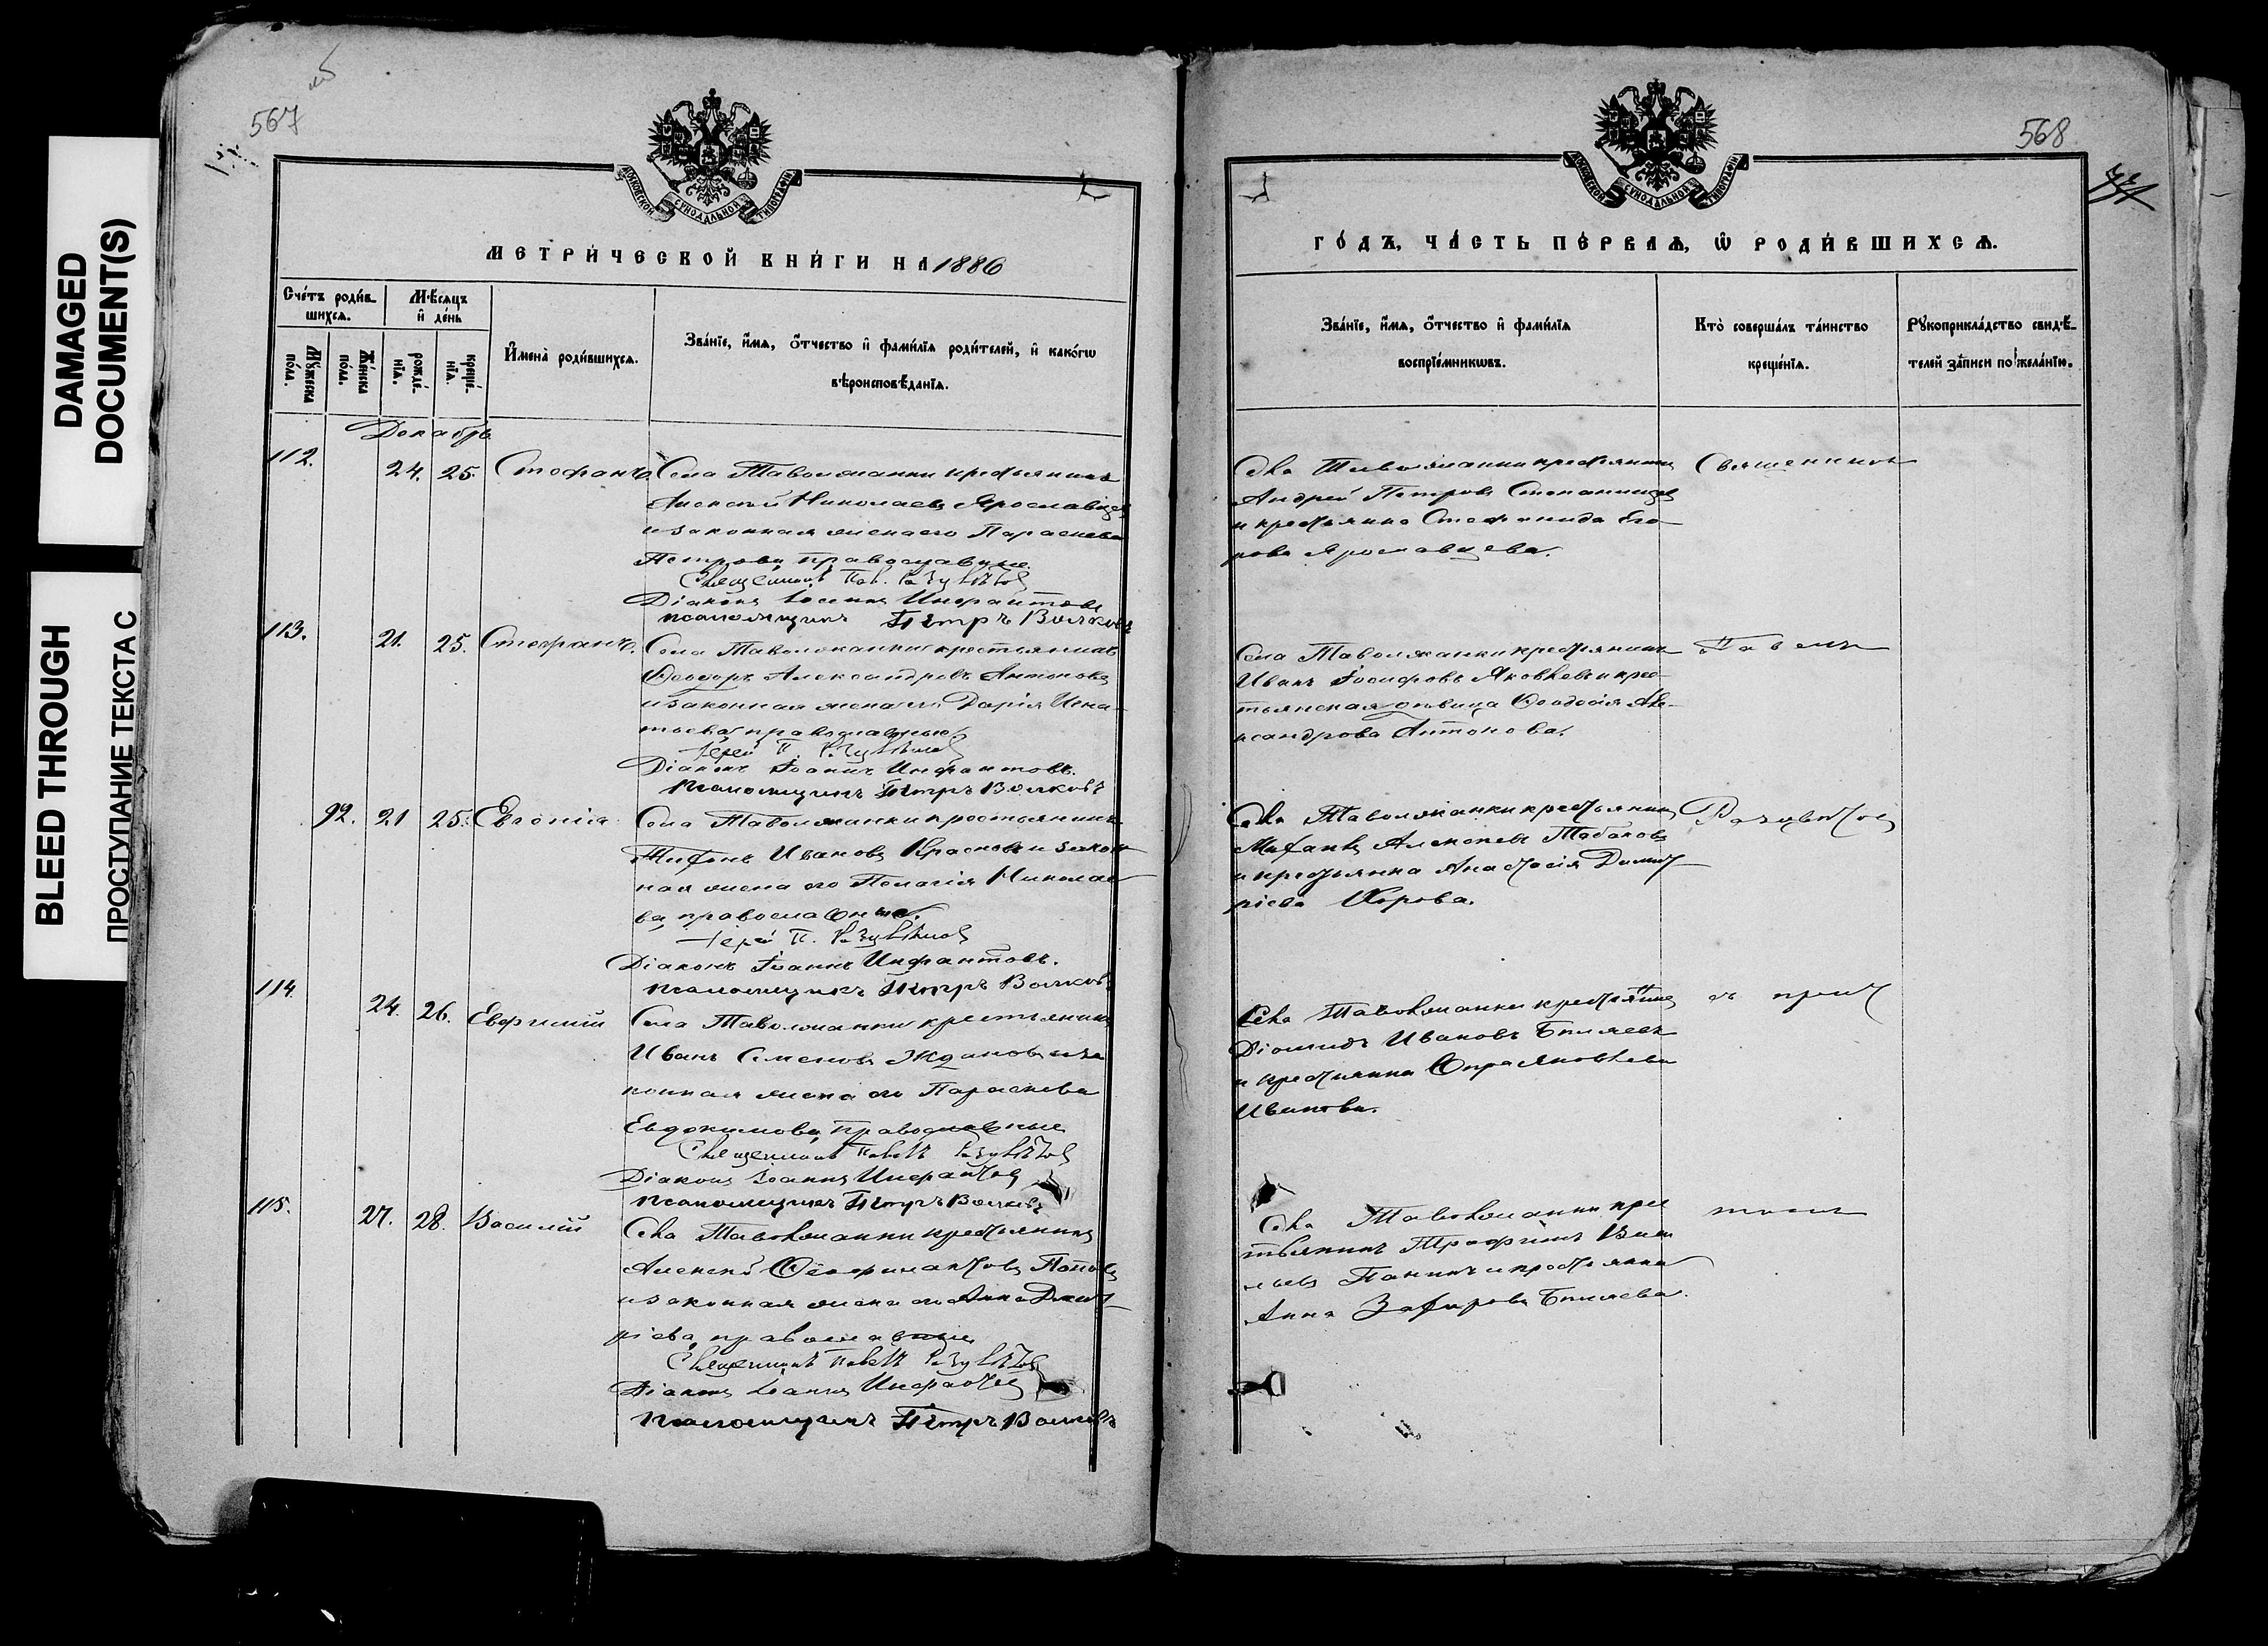 DAMAGED
DOCUMENT(S)
BLEED THROUGH
ПРОСТУПАНИЕ ТЕКСТА С
567
МОСКОВСКОЙ СѴНОДАЛЬНОЙ ТИПОГРАФІИ
МЕТРИ́ЧЕСКОЙ КНИ́ГИ НА 1886
Сче́тъ роди́в-
шихсѧ.
Мѣсѧцъ
и҆ де́нь
Мꙋ́жеска
по́ла.
Же́нска
по́ла.
рожде́-
нїѧ.
креще́-
нїѧ.
И҆мена̀ роди́вшихсѧ.
Зва́нїе, и҆́мѧ, ѻ҆́тчество и҆ фами́лїѧ роди́телей, и҆ како́гѡ
вѣроисповѣ́данїѧ.
Декабрь
112. 24. 25. Стефанъ. Села Таволжанки крестьянинъ
Алексѣй Николаевъ Ярославцев
и законная жена его Параскева
Петрова, православные
Священникъ Пав. Разцвѣтов
Діаконъ Іоаннъ Инфантовъ
псаломщикъ Петръ Волковъ
113. 21. 25. Стефанъ. Села Таволжанки крестьянинъ
Ѳеодоръ Александровъ Антоновъ
и законная жена его Дарія Игна-
тьева, православные
Іерей П. Разцвѣтов
Діаконъ Іоаннъ Инфантовъ.
Псаломщикъ Петръ Волковъ
92. 21 25. Евгенія Села Таволжанки крестьянинъ
Ивановъ Красновъ и закон
ная жена его Пелагія Николае
ва, православные.
Іерей П. Разцвѣтов
Діаконъ Іоаннъ Инфантовъ.
псаломщикъ Петръ Волковъ
114. 24. 26. Евфимій Села Таволжанки крестьянинъ
Иванъ Семеновъ Ждановъ и за
конная жена его Параскева
Евдокимова, православные
Священникъ Павелъ Разцвѣтов
Діаконъ Іоаннъ Инфантов
Псаломщикъ Петръ Волковъ
115. 27. 28. Василій Села Таволжанки крестьянинъ
Алексѣй Поповъ
и законная жена его Анна Дмит
ріева, православные
Священникъ Павелъ Разцвѣтов
Діаконъ Іоаннъ Инфантов
Псаломщикъ Петръ Волковъ
568
МОСКОВСКОЙ СѴНОДАЛЬНОЙ ТИПОГРАФІИ
ГО́ДЪ, ЧА́СТЬ ПЕ́РВАѦ, Ѽ РОДИ́ВШИХСѦ.
Зва́нїе, и҆́мѧ, ѻ҆́тчество и҆ фами́лїѧ
воспрїе́мникѡвъ.
Кто̀ соверша́лъ та́инство
креще́нїѧ.
Рꙋкоприкла́дство свидѣ́-
телей за́писи по жела́нїю.
Села Таволжанки крестьянинъ Священникъ
Андрей Петровъ
и крестьянка Стефанида Его-
рова Ярославцева.
Села Таволжанки крестьянинъ Павелъ
Иванъ Іосифовъ Яковлевъ и крес-
тьянская дѣвица Ѳеодосія Але-
ксандрова Антонова.
Села Таволжанки крестьянинъ Разцвѣтов
Алексѣевъ Табаковъ
и крестьянка Анастасія Дмит
ріева
Села Таволжанки крестьянинъ съ прич
Діомидъ Ивановъ Бѣляевъ
и крестьянка Яковлева
Иванова.
Села Таволжанки крес томъ
тьянинъ Трофимъ Васи
льевъ Панинъ и крестьянка
Анна Бѣляева.